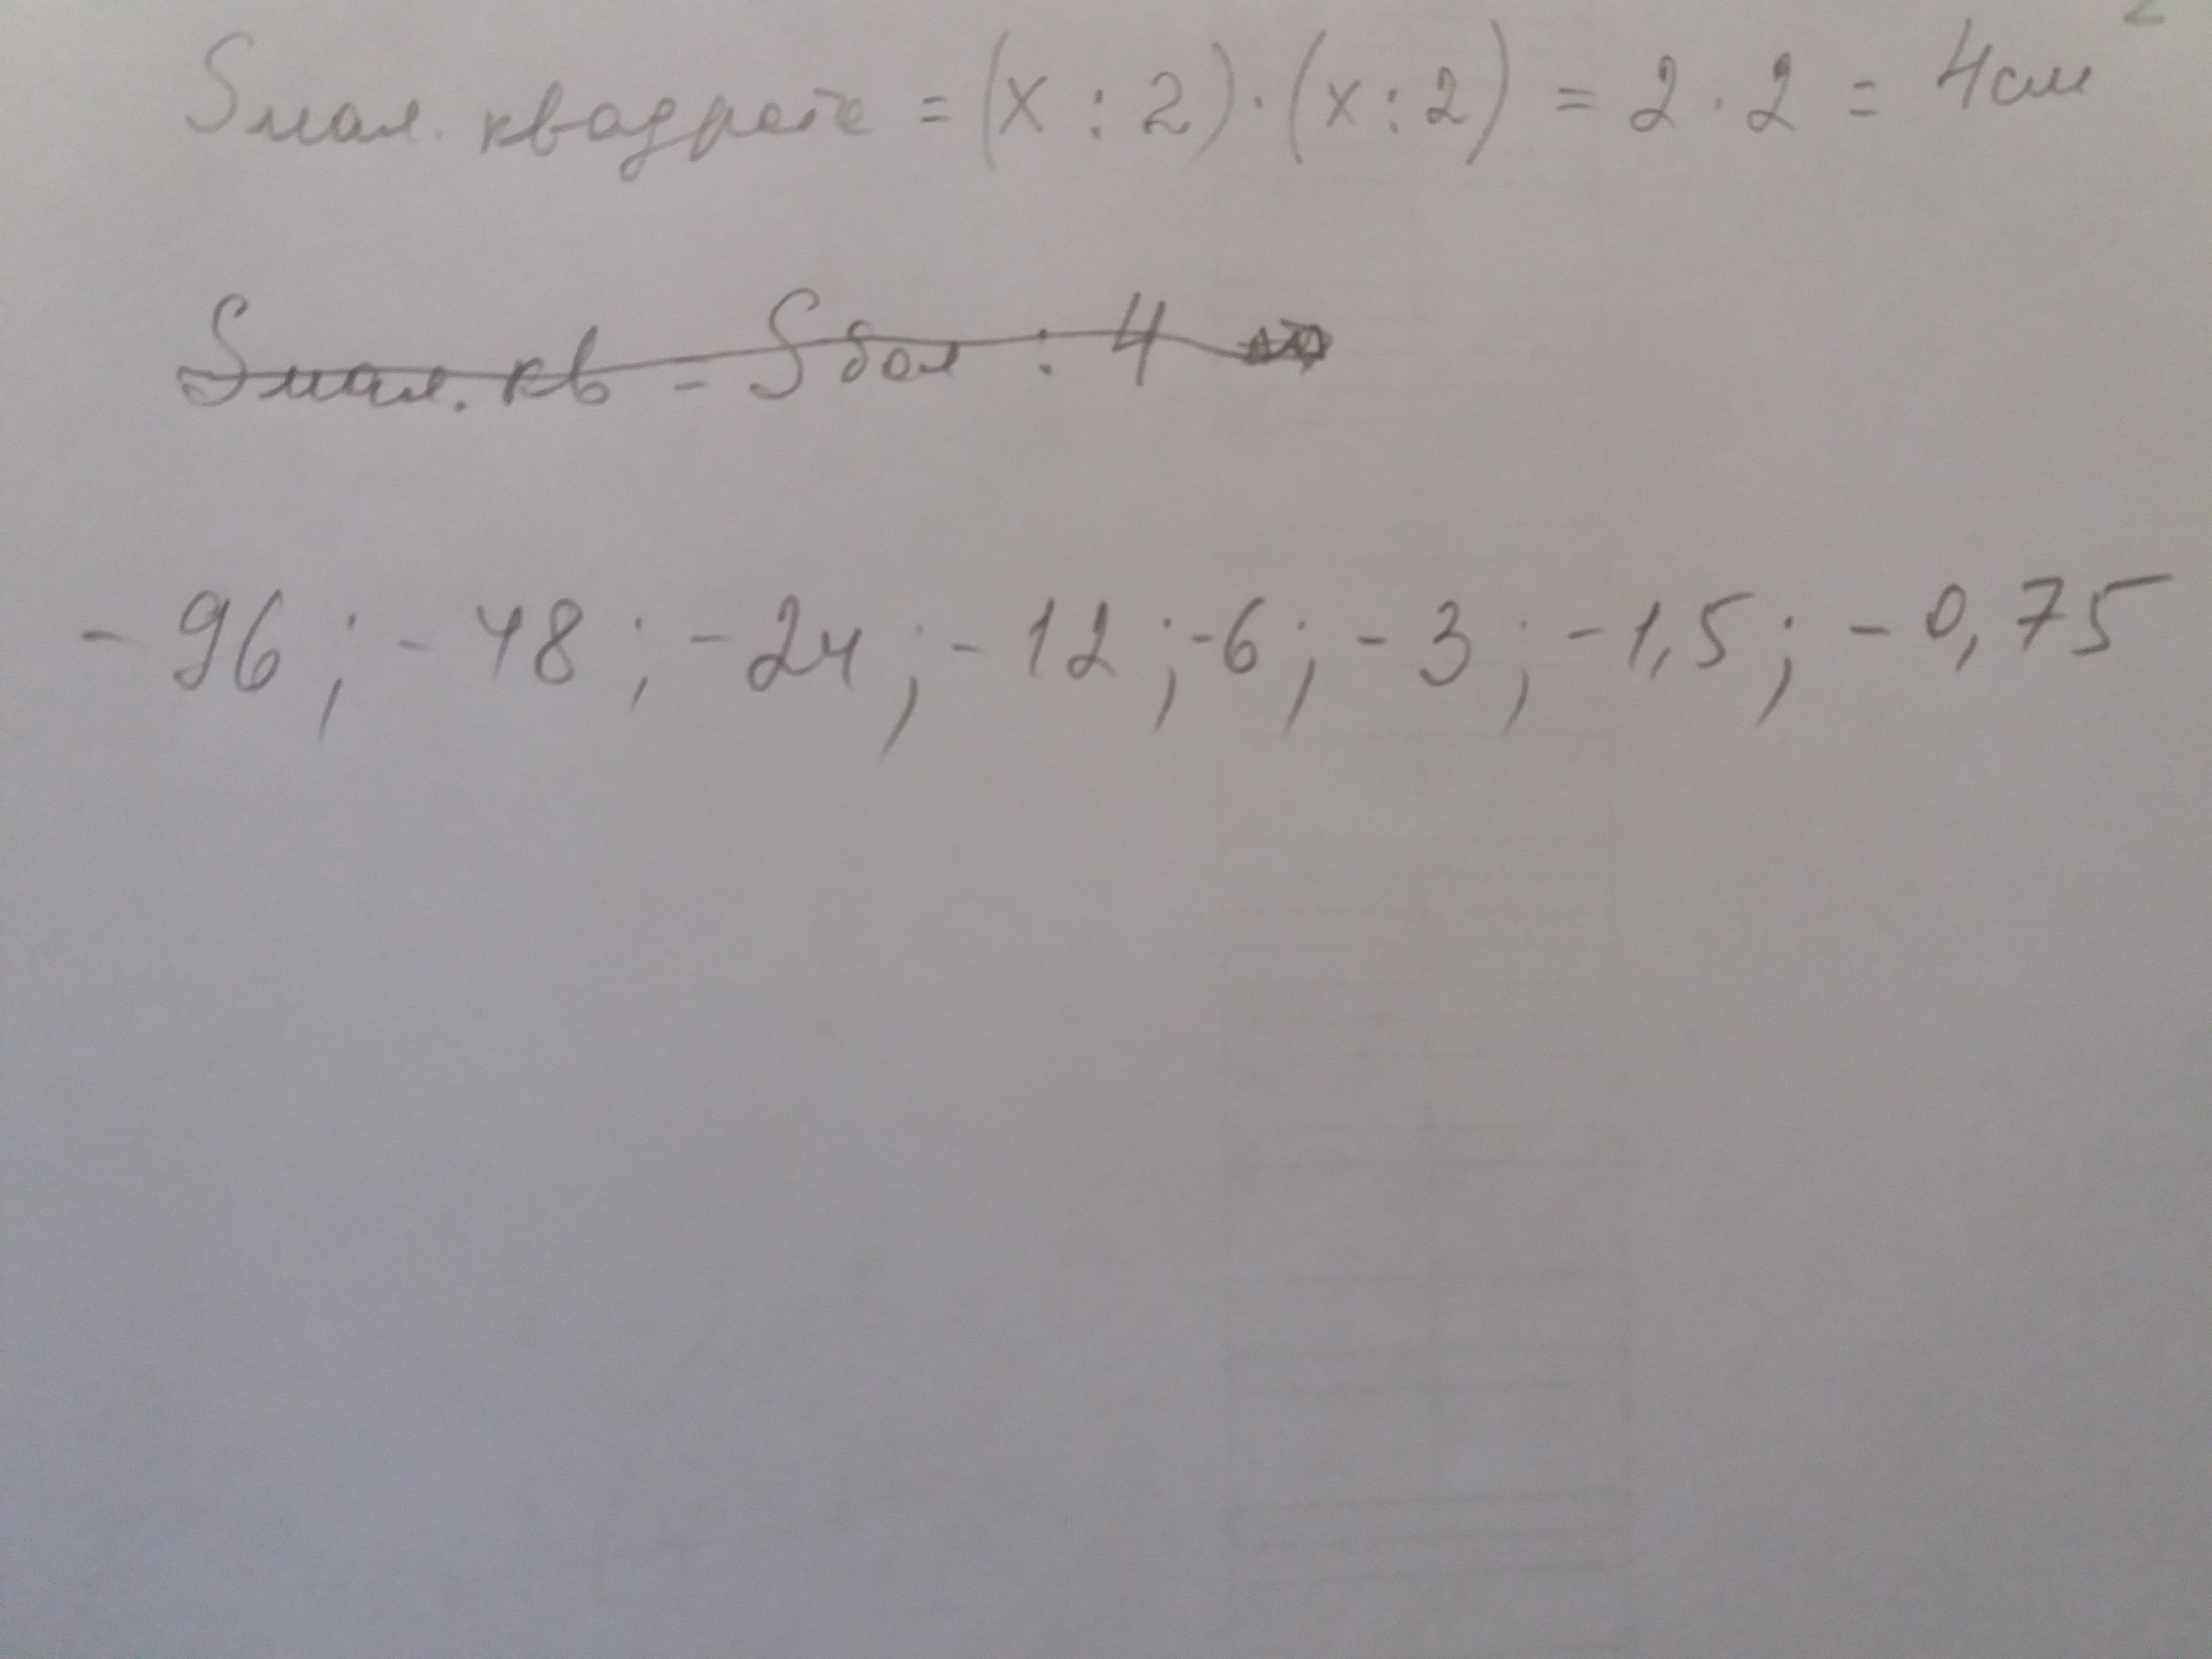 Sмал. квадрата = (x : 2) · (x : 2) = 2 · 2 = 4см²
Sмал. кв - Sбол : 4
- 96 ; - 48 ; - 24 ; - 12 ; - 6 ; - 3 ; - 1,5 ; - 0,75